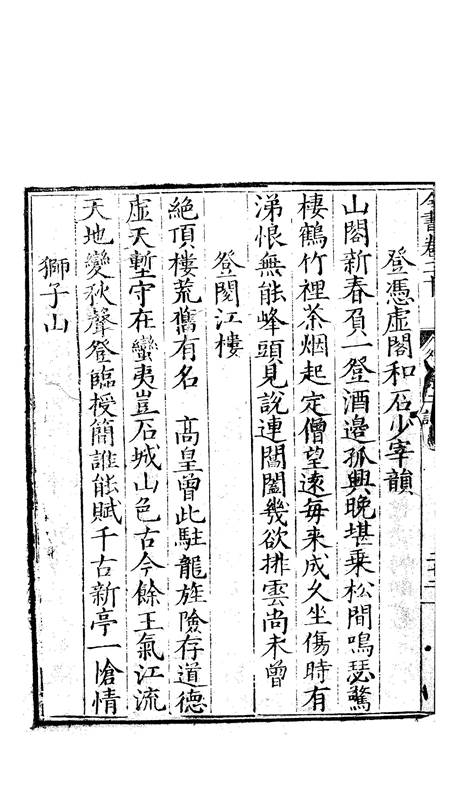 全書卷二十
登憑虛閣和石少宰韻
山閣新春負一登酒邊孤興晚堪乗松間鳴瑟驚
棲鶴竹裡茶烟起定僧望遠每来成久坐傷時有
涕恨無能峰頭見說連閶闔幾欲排雲尚未曾
登閱江樓
絕頂樓荒舊有名 髙皇曾此駐龍旌險存道德
虛天塹守在蠻夷豈石城山色古今餘王氣江流
天地變秋聲登臨授簡誰能賦千古新亭一愴情
獅子山